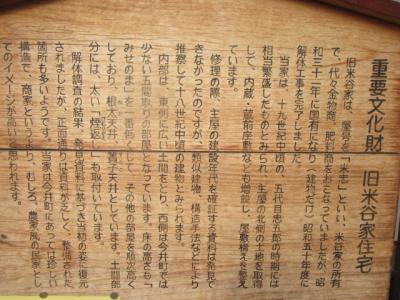 重要文化財　旧米谷家住宅
旧米谷家は、屋号を「米忠」といい、米谷家の所有
で、代々金物商、肥料商をおこなっていましたが、昭
和三十一年に国有になり（建物だけ）昭和五十年度に
解体工事を完了しました。
当家は、十九世紀中頃の、五代目忠五郎の時期には
相当繁盛したものとみられ、主屋の北側の土地を取得
して、内蔵・蔵前座敷なども増設し、屋敷構えを整え
ています。
修理の際、主屋の建設年代を確証する資料は発見で
きなかったのですが、類似建物、構造手法などにより
推察して十八世紀中頃の建物とみられます。
内部は、東側に広い土間をとり、西側は今井町では
少ない五間取りの部屋となっています。床の高さも「
みせのま」を一番低くして、その他の部屋を順次高く
しており、根太天井、簀子天井としています。土間部
分には、太い「煙返し」も取付いています。
解体調査の結果、発見資料に基づき当初の姿に復元
されましたが、正面廻りは資料が乏しく、整備された
箇所も多いようです。当家は今井町にあっては珍しい
構造で、商家というより、むしろ、農家風の民家とし
てのイメージが高いと思われます。